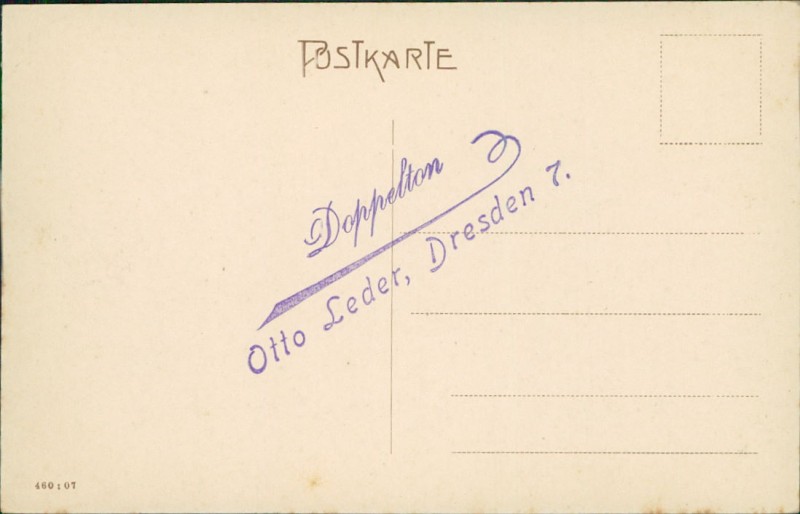 POSTKARTE
Doppelton
Otto Leder, Dresden 7.
460:07